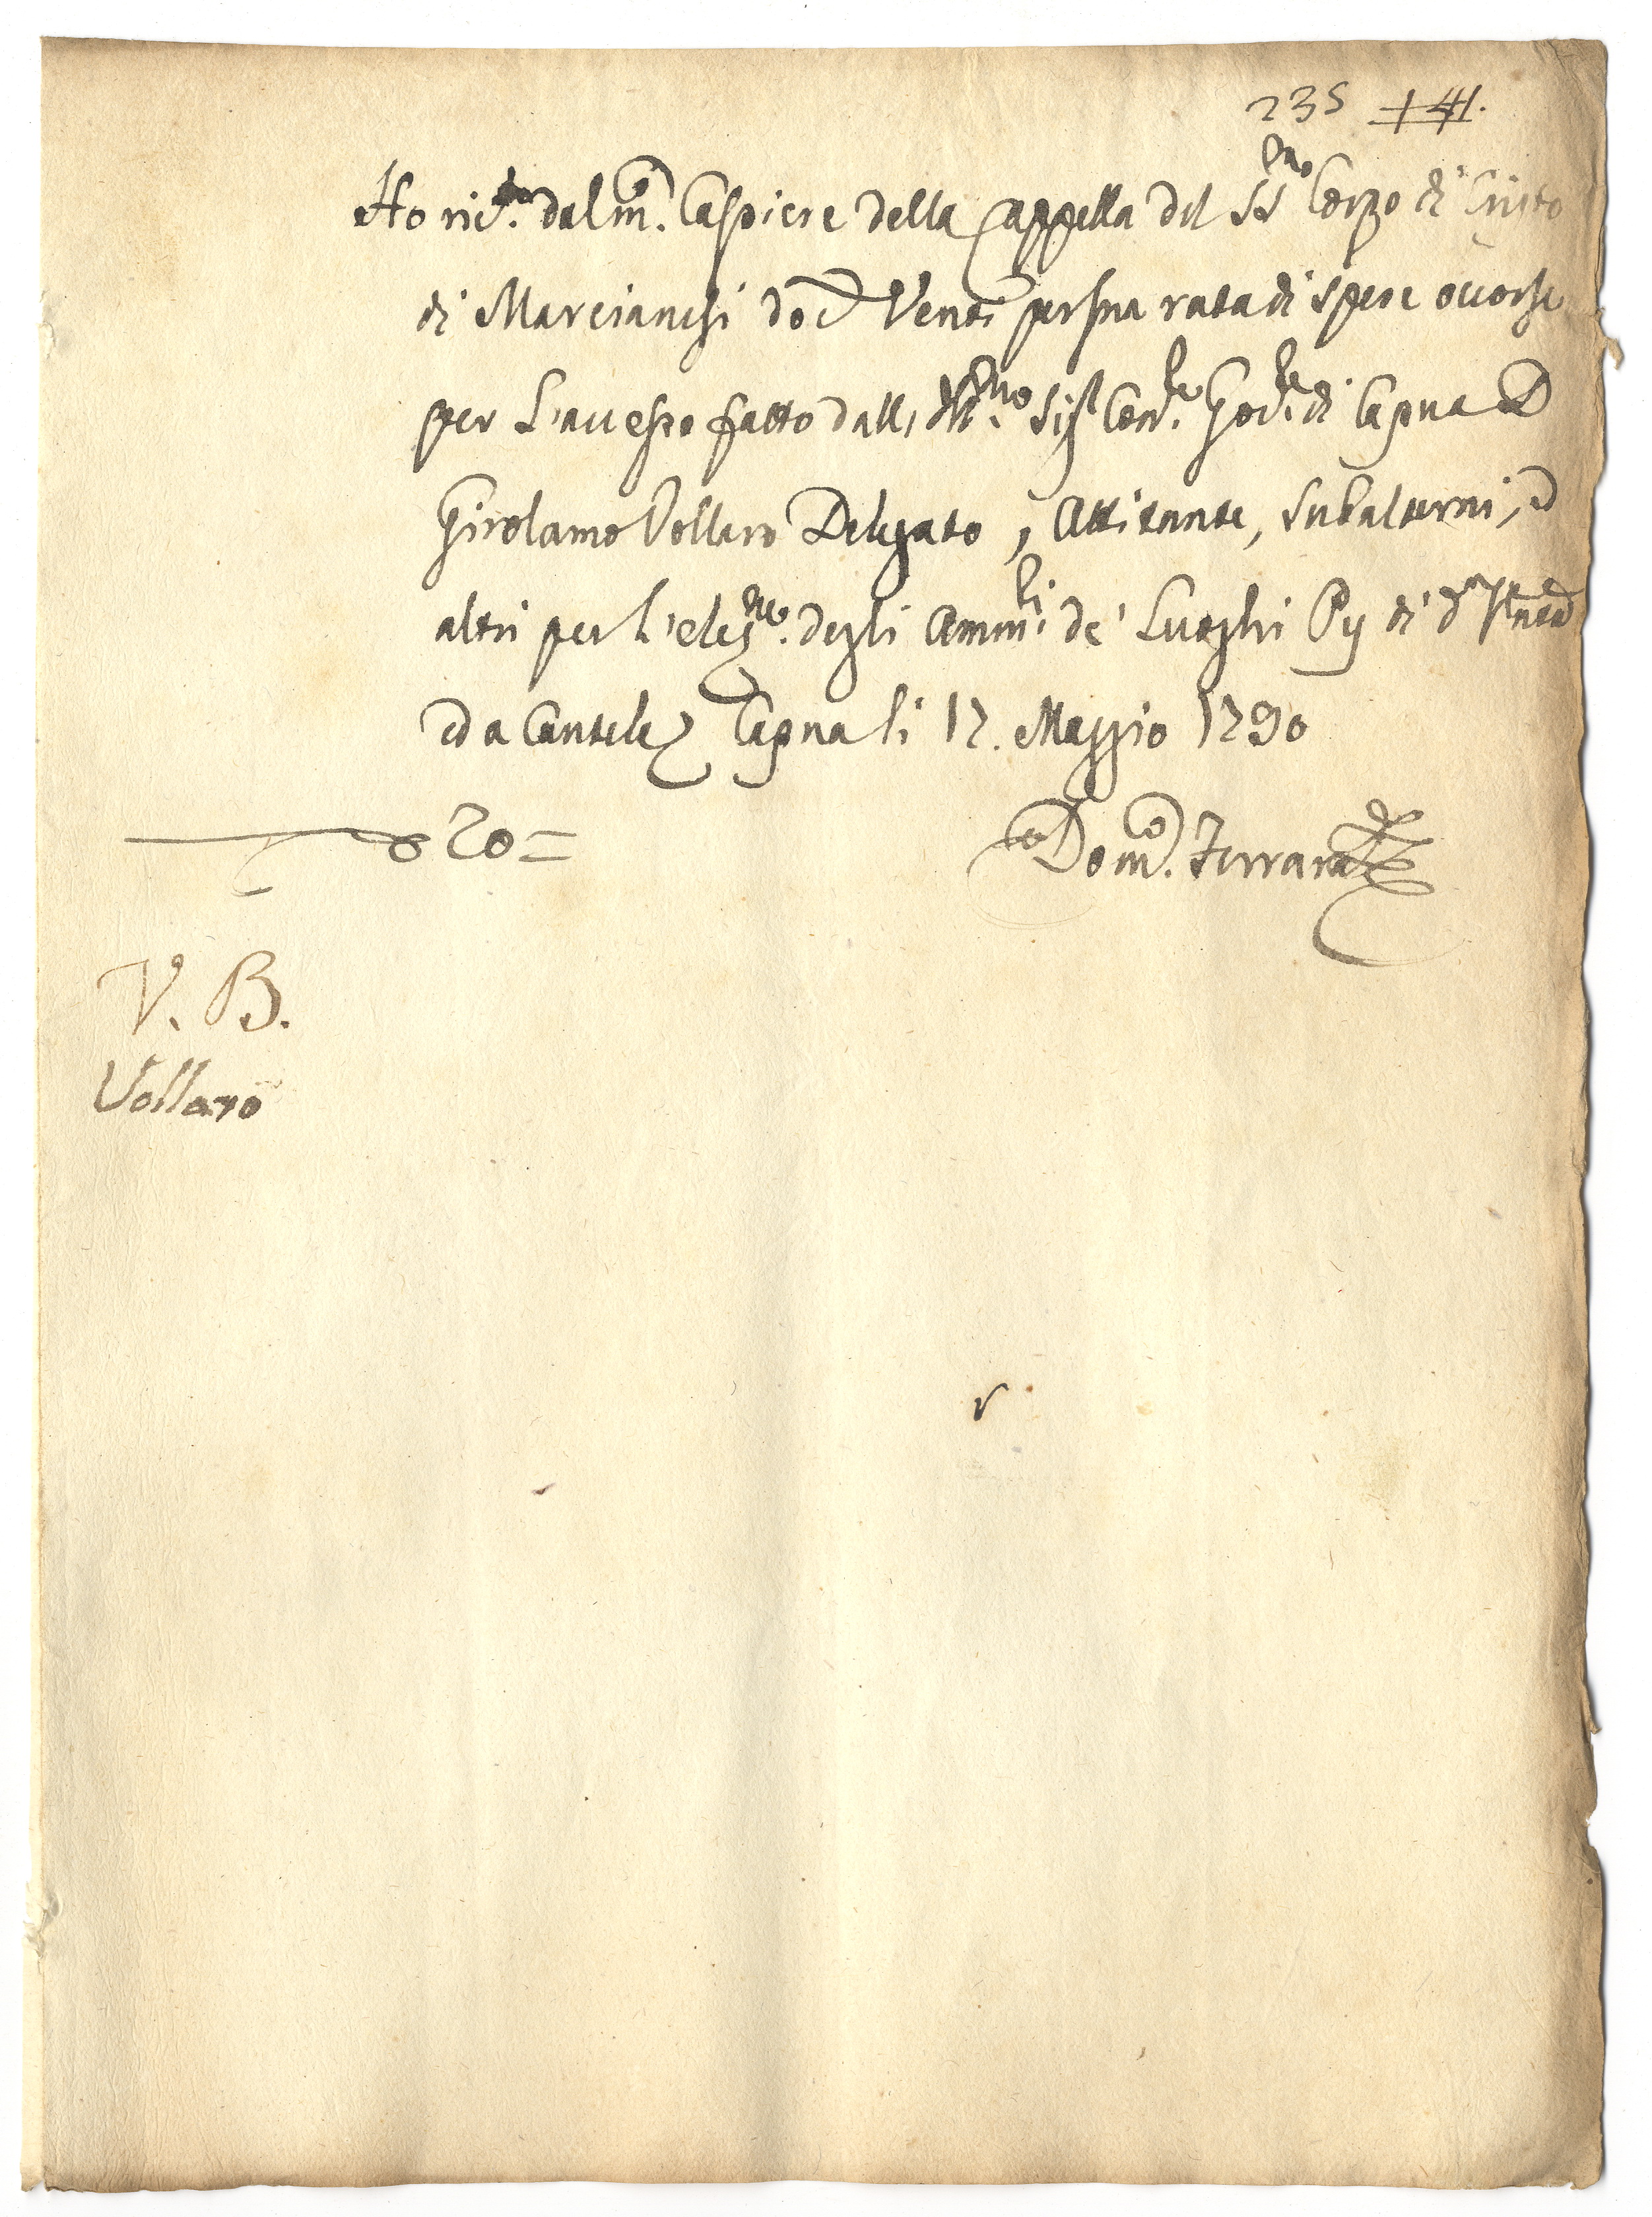 235 141.
Ho ric.to dal m.co Cassiere della Cappella del SS.mo Corpo di Cristo
di Marcianesi doc.ti Venti per sua rata di spese occorse
per l'accesso fatto dall' Ill.mo Sig.r Con.re God.re di Capua D
Girolamo Vollaro Delegato, Attitante, Subalterni, ed
altri per l'elez.ne degli Amm.ri de' Luoghi Pij di d.o
ed a Cautela Capua li 17. Maggio 1790
20=
Dom.co Ferrara
V. B.
Vollaro